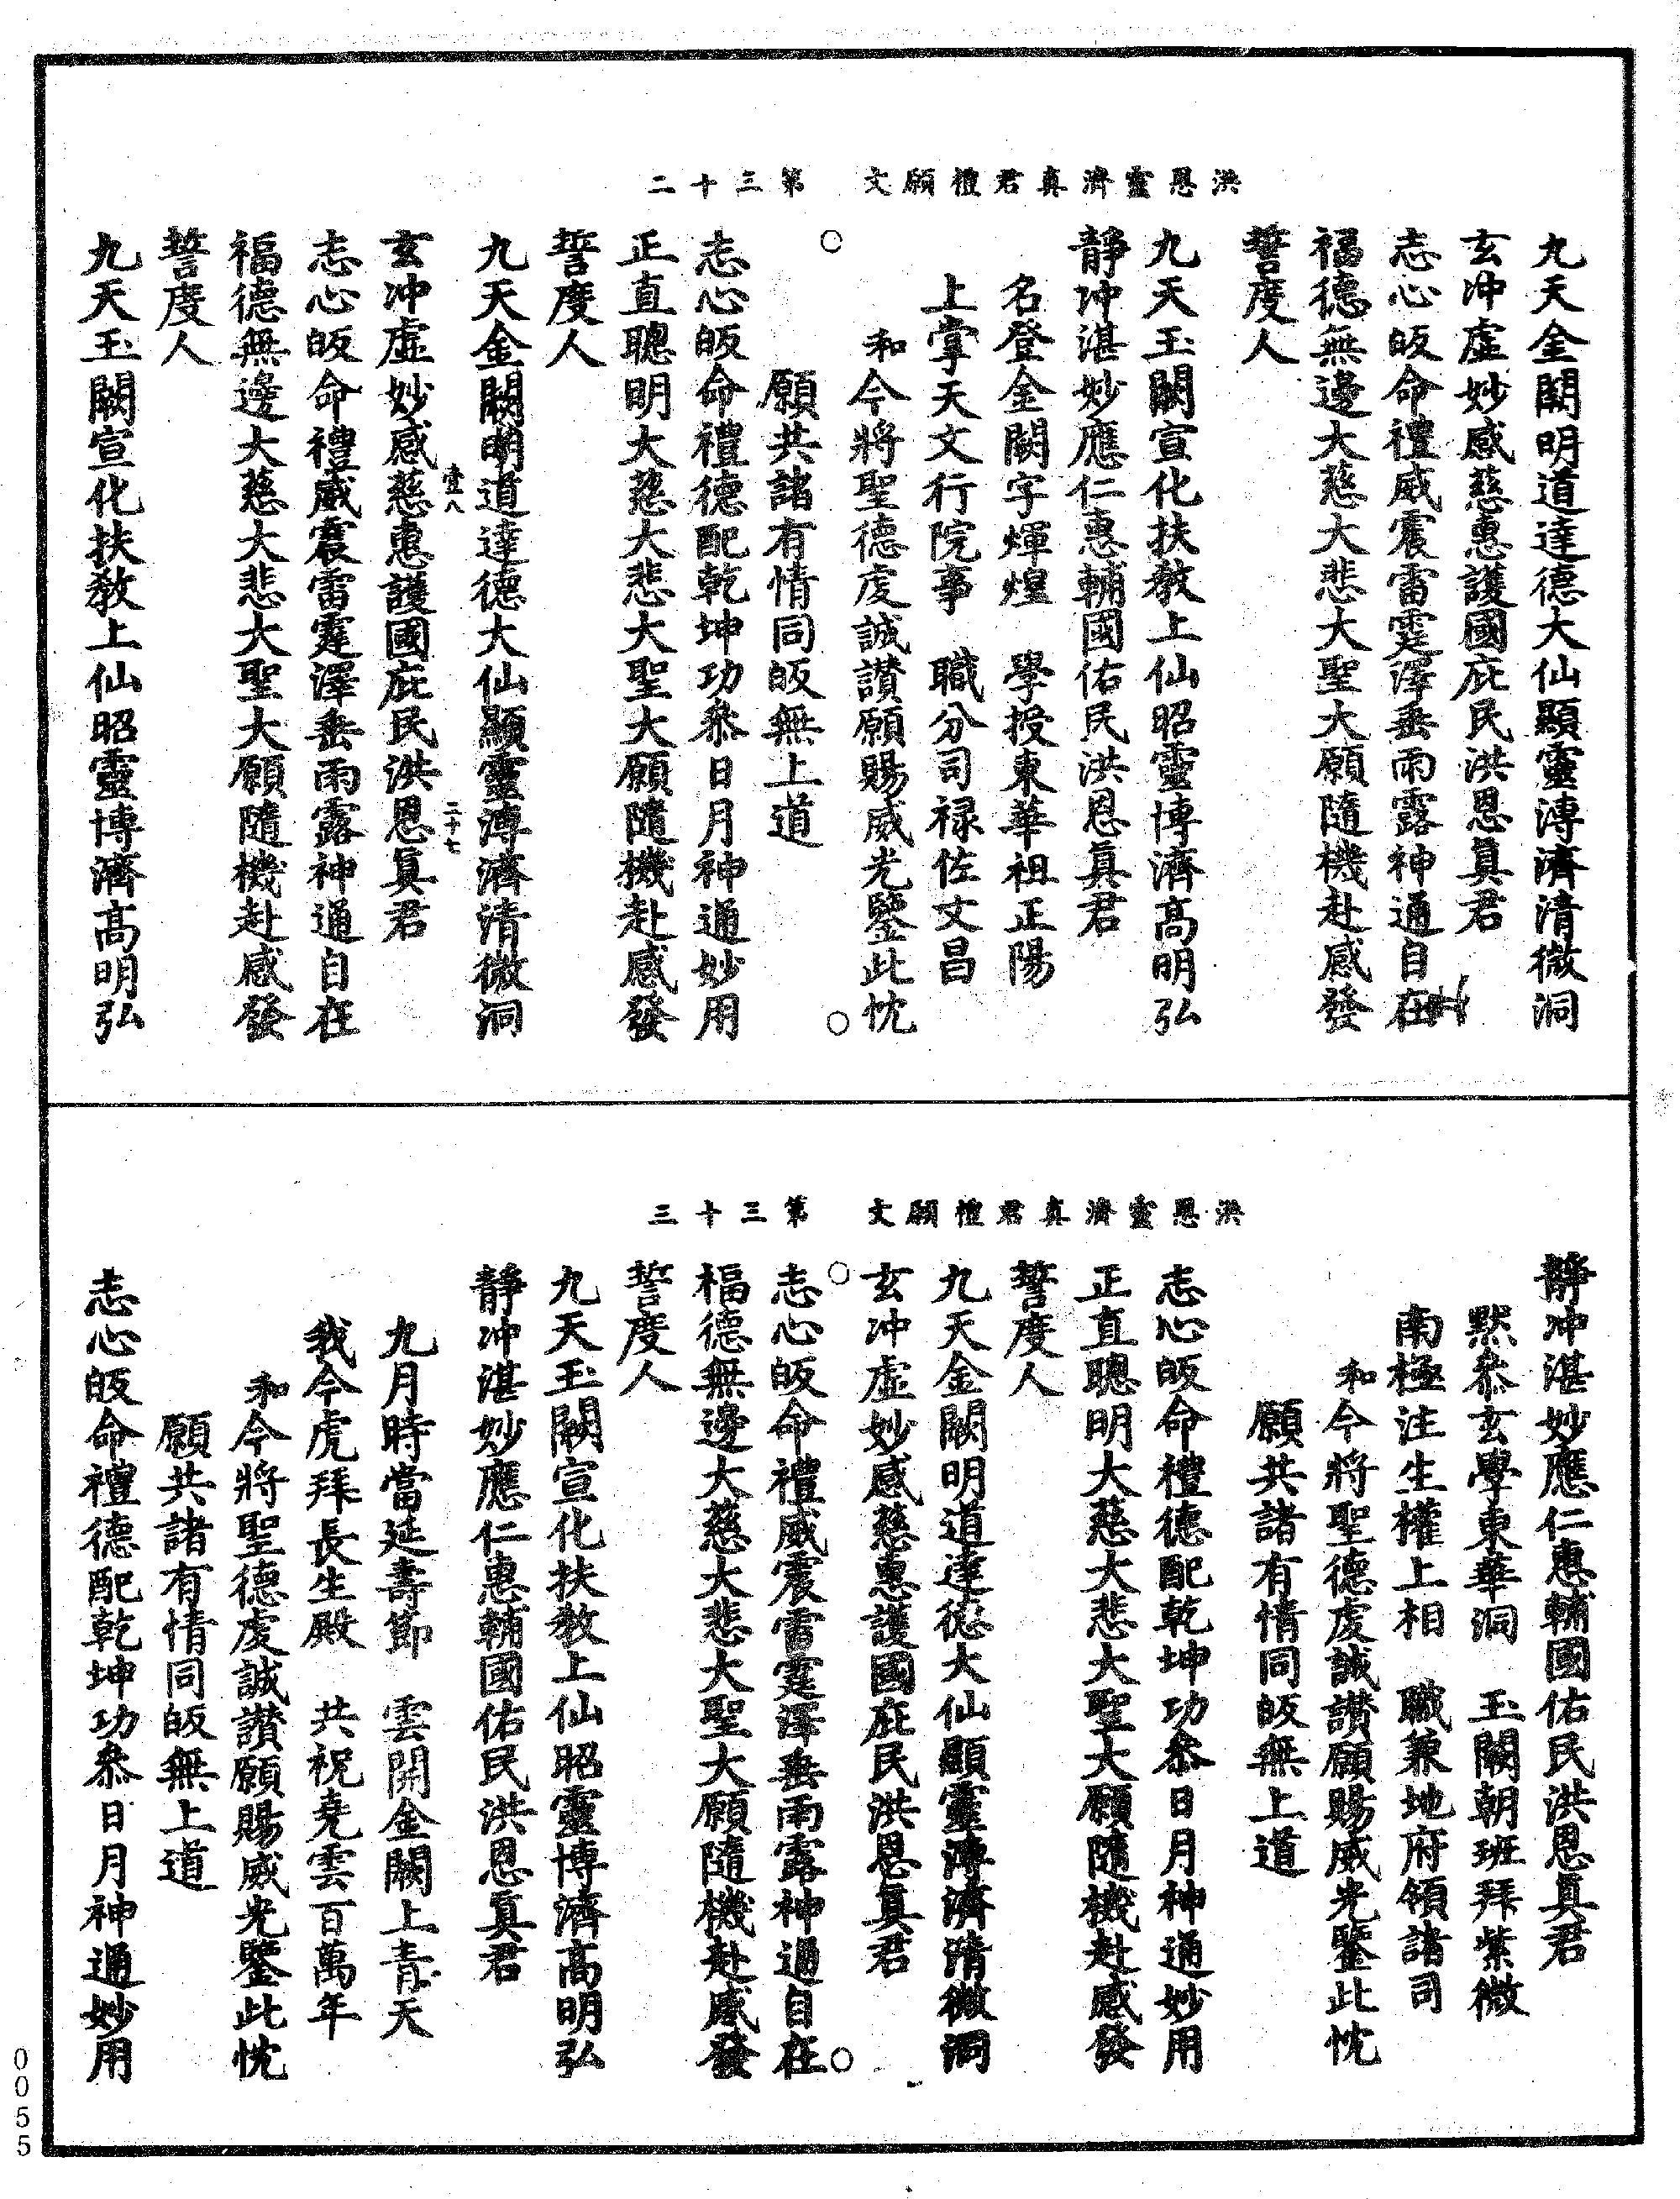 洪恩靈濟真君禮願文　第三十二
九天金闕明道達德大仙顯靈溥濟清微洞
玄冲虛妙感慈惠護國庇民洪恩真君
志心皈命禮威震雷霆澤垂雨露神通自在
福德無邊大慈大悲大聖大願隨機赴感發
誓度人
九天玉闕宣化扶教上仙昭靈博濟高明弘
靜冲湛妙應仁惠輔國佑民洪恩真君
名登金闕字煇煌　學授東華祖正陽
上掌天文行院事　職分司祿佐文昌
和今將聖德虔誠讚願賜威光鑒此忱
願共諸有情同皈無上道
志心皈命禮德配乾坤功叅日月神通妙用
正直聰明大慈大悲大聖大願隨機赴感發
誓度人
九天金闕明道達德大仙顯靈溥濟清微洞
壹八　二十七
玄冲虛妙感慈惠護國庇民洪恩真君
志心皈命禮威震雷霆澤垂雨露神通自在
福德無邊大慈大悲大聖大願隨機赴感發
誓度人
九天玉闕宣化扶教上仙昭靈博濟高明弘
洪恩靈濟真君禮願文　第三十三
靜冲湛妙應仁惠輔國佑民洪恩真君
默叅玄學東華洞　玉闕朝班拜紫微
南極注生權上相　職兼地府領諸司
和今將聖德虔誠讚願賜威光鑒此忱
願共諸有情同皈無上道
志心皈命禮德配乾坤功叅日月神通妙用
正直聰明大慈大悲大聖大願隨機赴感發
誓度人
九天金闕明道達德大仙顯靈溥濟清微洞
玄冲虛妙感慈惠護國庇民洪恩真君
志心皈命禮威震雷霆澤垂雨露神通自在
福德無邊大慈大悲大聖大願隨機赴感發
誓度人
九天玉闕宣化扶教上仙昭靈博濟高明弘
靜冲湛妙應仁惠輔國佑民洪恩真君
九月時當延壽節　雲開金闕上青天
我今虎拜長生殿　共祝堯雲百萬年
和今將聖德虔誠讚願賜威光鑒此忱
願共諸有情同皈無上道
志心皈命禮德配乾坤功叅日月神通妙用
0055